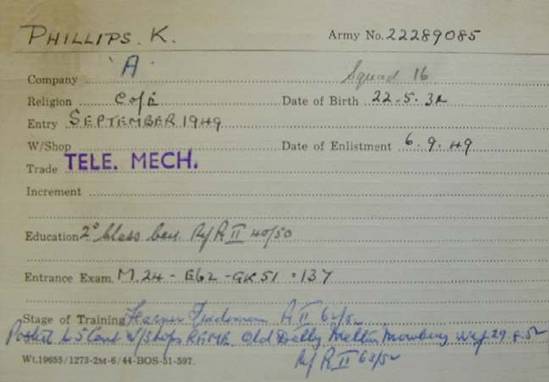 PHILLIPS. K. Army No. 22289085
Company 'A' Squad 16
Religion C of E Date of Birth 22.5.32
Entry SEPTEMBER 1949
W/Shop Date of Enlistment 6.9.49
Trade TELE. MECH.
Increment
Education 2° Class Cert. Pt II 40/50
Entrance Exam. M.24 - E62 - GK51 . 137
Stage of Training II 62/52
Posted to 5 Cent W/Shops REME Old Dalby Melton Mowbray wef 29.8.52
II 63/52
Wt.19655/1273-2M-6/44-BOS-51-597.